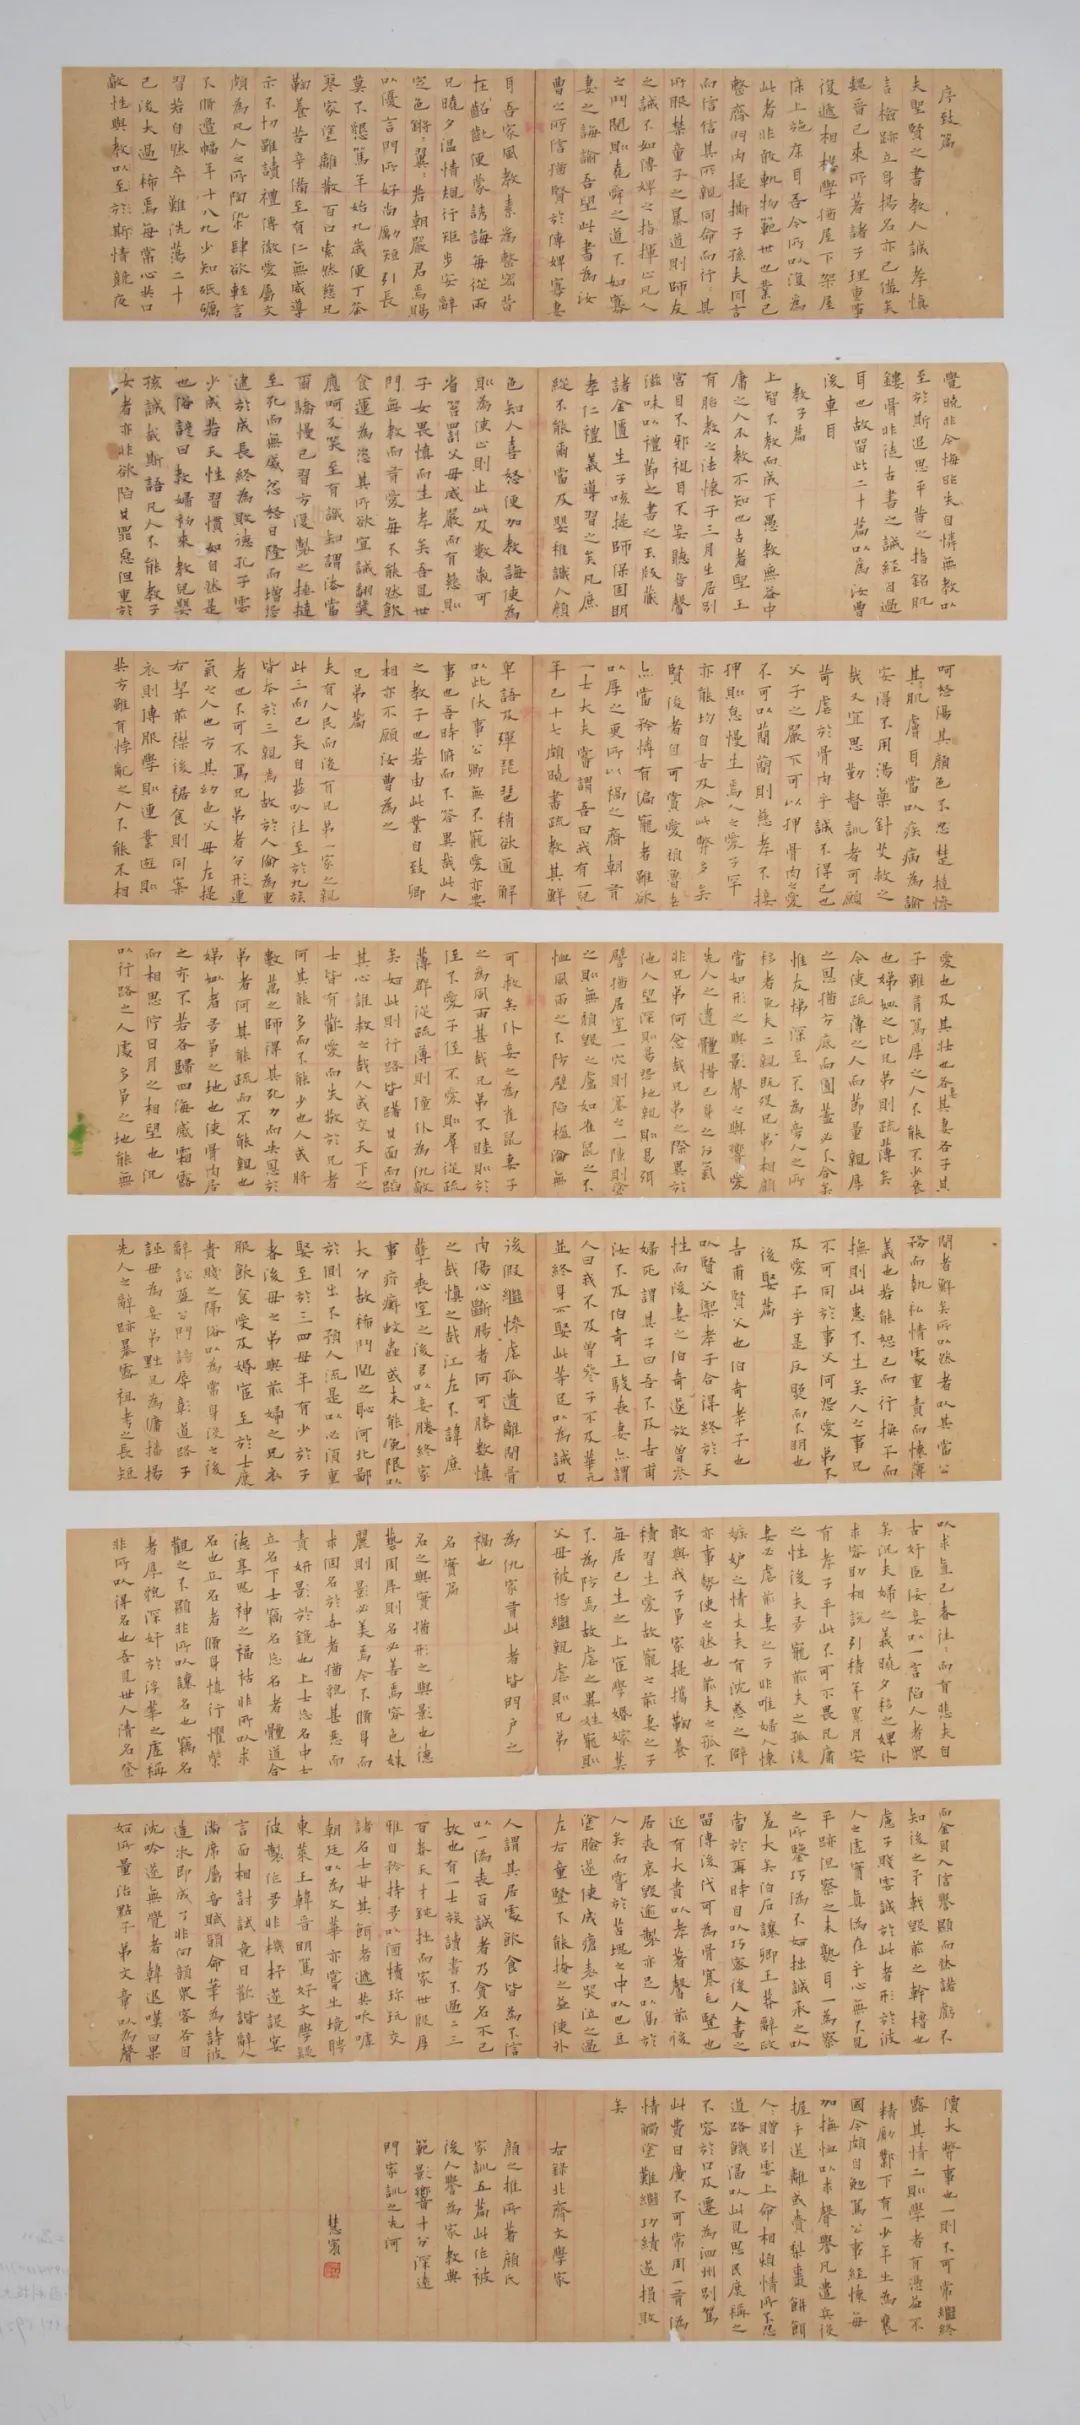 序致篇
夫聖賢之書教人誠孝慎
言檢跡立身揚名亦已備矣
魏晉已來所著諸子理重事
復遞相模學猶屋下架屋
床上施床耳吾今所以復為
此者非敢軌物範世也業已
整齊門內提撕子孫夫同言
而信信其所親同命而行:其
所服禁童子之暴謔則師友
之誡不如傅婢之指揮止凡人
之鬥鬩則堯舜之道不如寡
妻之誨諭吾望此書為汝
曹之所信猶賢於傅婢寡妻
耳吾家風教素為整密昔
在齠齔便蒙誘誨每從兩
兄曉夕溫情規行矩步安辭
定色鏘:翼:若朝嚴君焉賜
以優言問所好尚勵短引長
莫不懇篤年始九歲便丁荼
蓼家塗離散百口索然慈兄
鞠養苦辛備至有仁無威導
示不切雖讀禮傳微愛屬文
頗為凡人之所陶染肆欲輕言
不脩邊幅年十八九少知砥礪
習若自然卒難洗蕩二十
已後大過稀焉每常心共口
敵性與教以至於斯情競夜
覺曉非今悔昨失自憐無教以
至於斯追思平昔之指銘肌
鏤骨非徒古書之誡經目過
耳也故留此二十篇以為汝曹
後車耳
教子篇
上智不教而成下愚教無益中
庸之人不教不知也古者聖王
有胎教之法懷子三月出居別
宮目不邪視耳不妄聽音聲
滋味以禮節之書之玉版藏
諸金匱生子咳提師保固明
孝仁禮義導習之矣凡庶
縱不能爾當及嬰稚識人顏
色知人喜怒便加教誨使為
則為使止則止比及數歲可
省笞罰父母威嚴而有慈則
子女畏慎而生孝矣吾見世
間無教而有愛每不能然飲
食運為恣其所欲宜誡翻獎
應呵反笑至有識知謂法當
爾驕慢已習方復製之捶撻
至死而無威忿怒日隆而增怨
逮於成長終為敗德孔子雲
少成若天性習慣如自然是
也俗諺曰教婦初來教兒嬰
孩誠哉斯語凡人不能教子
女者亦非欲陷其罪惡但重於
呵怒傷其顏色不忍楚撻慘
其肌膚耳當以疾病為諭
安得不用湯藥針艾救之
哉又宜思勤督訓者可願
苛虐於骨肉乎誠不得已也
父子之嚴不可以狎骨肉之愛
不可以簡簡則慈孝不接
狎則怠慢生焉人之愛子罕
亦能均自古及今此弊多矣
賢俊者自可賞愛頑魯者
亦當矜憐有偏寵者雖欲
以厚之更所以禍之齊朝有
一士大夫嘗謂吾曰我有一兒
年已十七頗曉書疏教其鮮
卑語及彈琵琶稍欲通解
以此伏事公卿無不寵愛亦要
事也吾時俯而不答異哉此人
之教子也若由此業自致卿
相亦不願汝曹為之
兄弟篇
夫有人民而後有兄弟一家之親
此三而已矣自茲以往至於九族
皆本於三親焉故於人倫為重
者也不可不篤兄弟者分形連
氣之人也方其幼也父母左提
右挈前襟後裾食則同案
衣則傳服學則連業遊則
共方雖有悖亂之人不能不相
愛也及其壯也各其妻各子其
子雖有篤厚之人不能不少衰
也娣姒之比兄弟則疏薄矣
今使疏薄之人而節量親厚
之恩猶方底而圓蓋必不合矣
惟友悌深至不為旁人之所
移者免夫二親既歿兄弟相顧
當如形之與影聲之與響愛
先人之遺體惜己身之分氣
非兄弟何念哉兄弟之際異於
他人望深則易怨地親則易弭
譬猶居室一穴則塞之一隙則塗
之則無頹毀之慮如雀鼠之不
恤風雨之不防壁陷楹淪無
可救矣仆妾之為雀鼠妻子
之為風雨甚哉兄弟不睦則子
侄不愛子侄不愛則群從疏
薄群從疏薄則僮仆為仇敵
矣如此則行路皆踖其面而蹈
其心誰救之哉人或交天下之
士皆有歡愛而失敬於兄者
何其能多而不能少也人或將
數萬之師得其死力而失恩於
弟者何其能疏而不能親也
娣姒者多爭之地也使骨肉居
之亦不若各歸四海感霜露
而相思佇日月之相望也況
以行路之人處多爭之地能無
間者鮮矣所以然者以其當公
務而執私情處重責而懷薄
義也若能恕己而行換子而
撫則此患不生矣人之事兄
不可同於事父何怨愛弟不
及愛子乎是反照而不明也
後娶篇
吉甫賢父也伯奇孝子也
以賢父禦孝子合得終於天
性而後妻之伯奇遂放曾參
婦死謂其子曰吾不及吉甫
汝不及伯奇王駿喪妻亦謂
人曰我不及曾參子不及華元
並終身不娶此等足以為誡其
後假繼慘虐孤遺離間骨
肉傷心斷腸者何可勝數慎
之哉慎之哉江左不諱庶
孽喪室之後多以妾媵終家
事疥癬蚊虻或未能免限以
大分故稀鬥鬩之恥河北鄙
於側出不預人流是以必須重
娶至於三四母年有少於子
者後母之弟與前婦之兄衣
服飲食愛及婚宦至於士庶
貴賤之隔俗以為常身沒之後
辭訟盈公門謗辱彰道路子
誣母為妾弟黜兄為傭播揚
先人之辭跡暴露祖考之長短
以求直己者往:而有悲夫自
古奸臣佞妾以一言陷人者眾
矣況夫婦之義曉夕移之婢仆
求容助相說引積年累月安
有孝子乎此不可不畏凡庸
之性後夫多寵前夫之孤後
妻必虐前妻之子非唯婦人懷
嫉妒之情丈夫有沈惑之僻
亦事勢使之然也前夫之孤不
敢與我子爭家提攜鞠養
積習生愛故寵之前妻之子
每居己生之上宦學婚嫁莫
不為防焉故虐之異姓寵則
父母被怨繼親虐則兄弟
為仇家有此者皆門戶之
禍也
名實篇
名之與實猶形之與影也德
藝周厚則名必善焉容色姝
麗則影必美焉今不脩身而
求令名於世者猶貌甚惡而
責妍影於鏡也上士忘名中士
立名下士竊名忘名者體道合
德享鬼神之福祐非所以求
名也立名者脩身慎行懼榮
觀之不顯非所以讓名也竊名
者厚貌深奸於浮華之虛稱
非所以得名也吾見世人清名登
而金貝入信譽顯而然諾虧不
知後之矛戟毀前之幹櫓也
虙子賤雲誠於此者形於彼
人之虛實真偽在乎心無不見
乎跡但察之未熟耳一為察
之所鑒巧偽不如拙誠承之以
羞大矣伯石讓卿王莽辭政
當於爾時自以巧密後人書之
留傳後代可為骨寒毛豎也
近有大貴以孝著聲前後
居喪哀毀逾製亦足以高於
人矣而嘗於苫塊之中以巴豆
塗臉遂使成瘡表哭泣之過
左右童豎不能掩之益使外
人謂其居處飲食皆為不信
以一偽喪百誠者乃貪名不已
故也有一士族讀書不過二三
百卷天才鈍拙而家世殷厚
雅自矜持多以酒犢珍玩交
諸名士甘其餌者遞共吹噓
朝廷以為文華亦嘗出境聘
東萊王韓晉明篤好文學疑
彼製作多非機杼遂設宴
言面相討試竟日歡諧辭人
滿席屬音賦韻命筆為詩彼
造次即成了非向韻眾客各自
沈吟遂無覺者韓退嘆曰果
如所量治點子弟文章以為聲
價大弊事也一則不可常繼終
露其情二則學者有憑益不
精勵鄴下有一少年出為襄
國令頗自勉篤公事經懷每
加撫恤以求聲譽凡遣兵役
握手送離或賫梨棗餅餌
人:贈別雲上命相煩情所不忍
道路饑渴以此見思民庶稱之
不容於口及遷為泗州別駕
此費日廣不可常周一有偽
情觸塗難繼功績遂損敗
矣
右錄北齊文學家
顏之推所著顏氏
家訓五篇此作被
後人譽為家教典
範影響十分深遠
門家訓之先河
慧賓